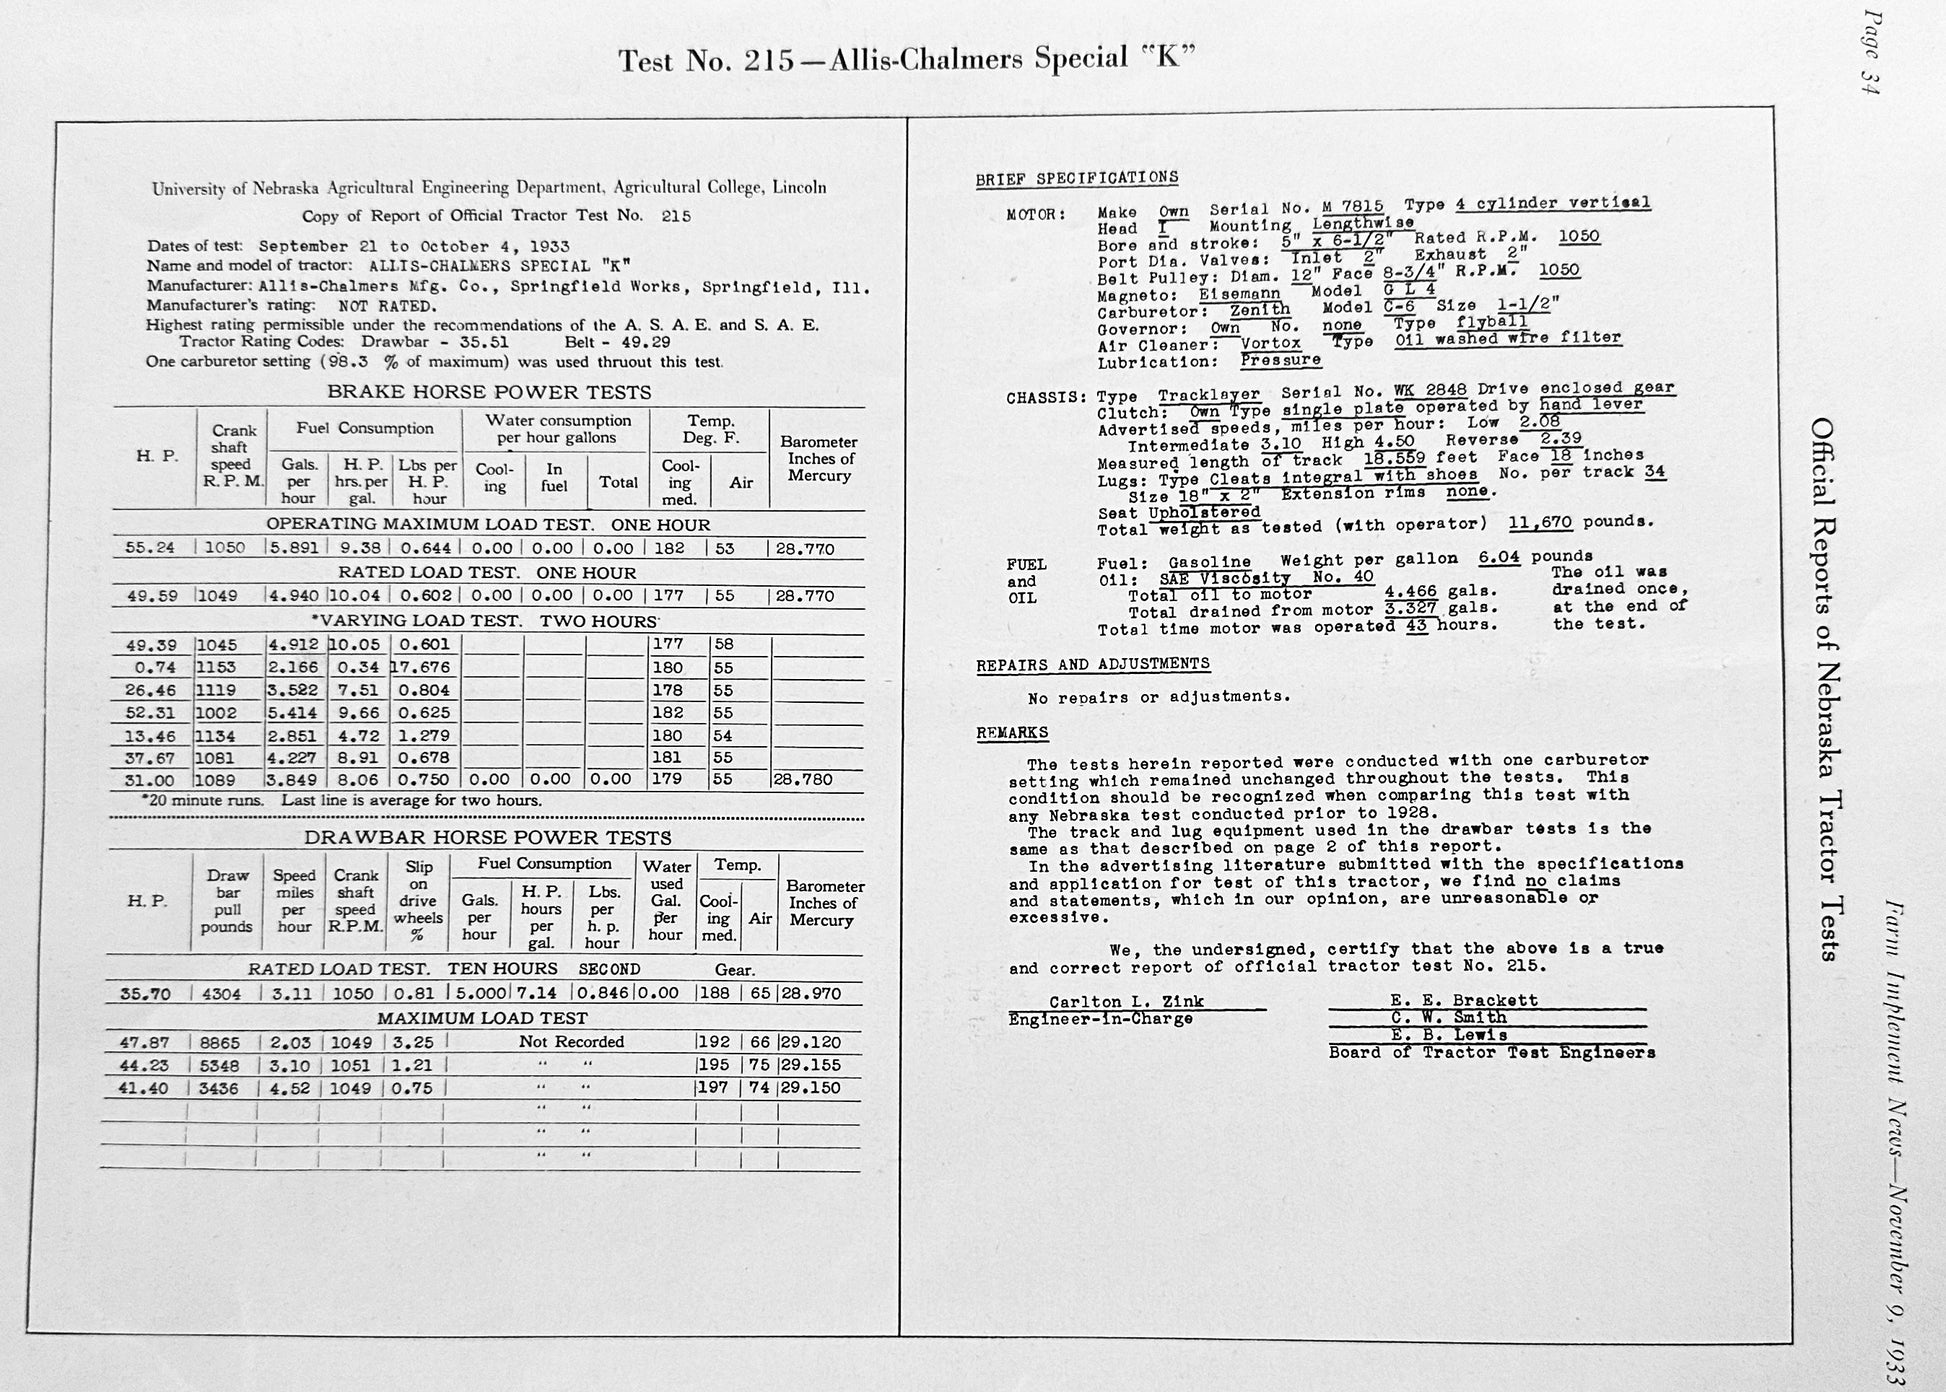 Page 34
Test No. 215—Allis-Chalmers Special “K”
University of Nebraska Agricultural Engineering Department, Agricultural College, Lincoln
Copy of Report of Official Tractor Test No. 215
Dates of test: September 21 to October 4, 1933
Name and model of tractor: ALLIS-CHALMERS SPECIAL "K"
Manufacturer: Allis-Chalmers Mfg. Co., Springfield Works, Springfield, Ill.
Manufacturer's rating: NOT RATED.
Highest rating permissible under the recommendations of the A. S. A. E. and S. A. E.
Tractor Rating Codes: Drawbar - 35.51 Belt - 49.29
One carburetor setting (98.3 % of maximum) was used thruout this test.
BRAKE HORSE POWER TESTS
H. P. Crank shaft speed R. P. M. Fuel Consumption Water consumption per hour gallons Temp. Deg. F. Barometer Inches of Mercury
Gals. per hour H. P. hrs. per gal. Lbs per H. P. hour Cool-ing In fuel Total Cool-ing med. Air
OPERATING MAXIMUM LOAD TEST. ONE HOUR
55.24 1050 5.891 9.38 0.644 0.00 0.00 0.00 182 53 28.770
RATED LOAD TEST. ONE HOUR
49.59 1049 4.940 10.04 0.602 0.00 0.00 0.00 177 55 28.770
*VARYING LOAD TEST. TWO HOURS
49.39 1045 4.912 10.05 0.601 177 58
0.74 1153 2.166 0.34 17.676 180 55
26.46 1119 3.522 7.51 0.804 178 55
52.31 1002 5.414 9.66 0.625 182 55
13.46 1134 2.851 4.72 1.279 180 54
37.67 1081 4.227 8.91 0.678 181 55
31.00 1089 3.849 8.06 0.750 0.00 0.00 0.00 179 55 28.780
*20 minute runs. Last line is average for two hours.
DRAWBAR HORSE POWER TESTS
H. P. Draw bar pull pounds Speed miles per hour Crank shaft speed R.P.M. Slip on drive wheels % Fuel Consumption Water used Gal. per hour Temp. Barometer Inches of Mercury
Gals. per hour H. P. hours per gal. Lbs. per h. p. hour Cool-ing med. Air
RATED LOAD TEST. TEN HOURS SECOND Gear.
35.70 4304 3.11 1050 0.81 5.000 7.14 0.846 0.00 188 65 28.970
MAXIMUM LOAD TEST
47.87 8865 2.03 1049 3.25 Not Recorded 192 66 29.120
44.23 5348 3.10 1051 1.21 “ “ 195 75 29.155
41.40 3436 4.52 1049 0.75 “ “ 197 74 29.150
“ “
“ “
“ “
BRIEF SPECIFICATIONS
MOTOR: Make Own Serial No. M 7815 Type 4 cylinder vertical
Head I Mounting Lengthwise
Bore and stroke: 5" x 6-1/2" Rated R.P.M. 1050
Port Dia. Valves: Inlet 2" Exhaust 2"
Belt Pulley: Diam. 12" Face 8-3/4" R.P.M. 1050
Magneto: Eisemann Model G L 4
Carburetor: Zenith Model C-6 Size 1-1/2"
Governor: Own No. none Type flyball
Air Cleaner: Vortox Type Oil washed wire filter
Lubrication: Pressure
CHASSIS: Type Tracklayer Serial No. WK 2848 Drive enclosed gear
Clutch: Own Type single plate operated by hand lever
Advertised speeds, miles per hour: Low 2.08
Intermediate 3.10 High 4.50 Reverse 2.39
Measured length of track 18.559 feet Face 18 inches
Lugs: Type Cleats integral with shoes No. per track 34
Size 18" x 2" Extension rims none.
Seat Upholstered
Total weight as tested (with operator) 11,670 pounds.
FUEL Fuel: Gasoline Weight per gallon 6.04 pounds
and Oil: SAE Viscosity No. 40 The oil was
OIL Total oil to motor 4.466 gals. drained once,
Total drained from motor 3.327 gals. at the end of
Total time motor was operated 43 hours. the test.
REPAIRS AND ADJUSTMENTS
No repairs or adjustments.
REMARKS
The tests herein reported were conducted with one carburetor
setting which remained unchanged throughout the tests. This
condition should be recognized when comparing this test with
any Nebraska test conducted prior to 1928.
The track and lug equipment used in the drawbar tests is the
same as that described on page 2 of this report.
In the advertising literature submitted with the specifications
and application for test of this tractor, we find no claims
and statements, which in our opinion, are unreasonable or
excessive.
We, the undersigned, certify that the above is a true
and correct report of official tractor test No. 215.
Carlton L. Zink
Engineer-in-Charge
E. E. Brackett
C. W. Smith
E. B. Lewis
Board of Tractor Test Engineers
Official Reports of Nebraska Tractor Tests
Farm Implement News—November 9, 1933